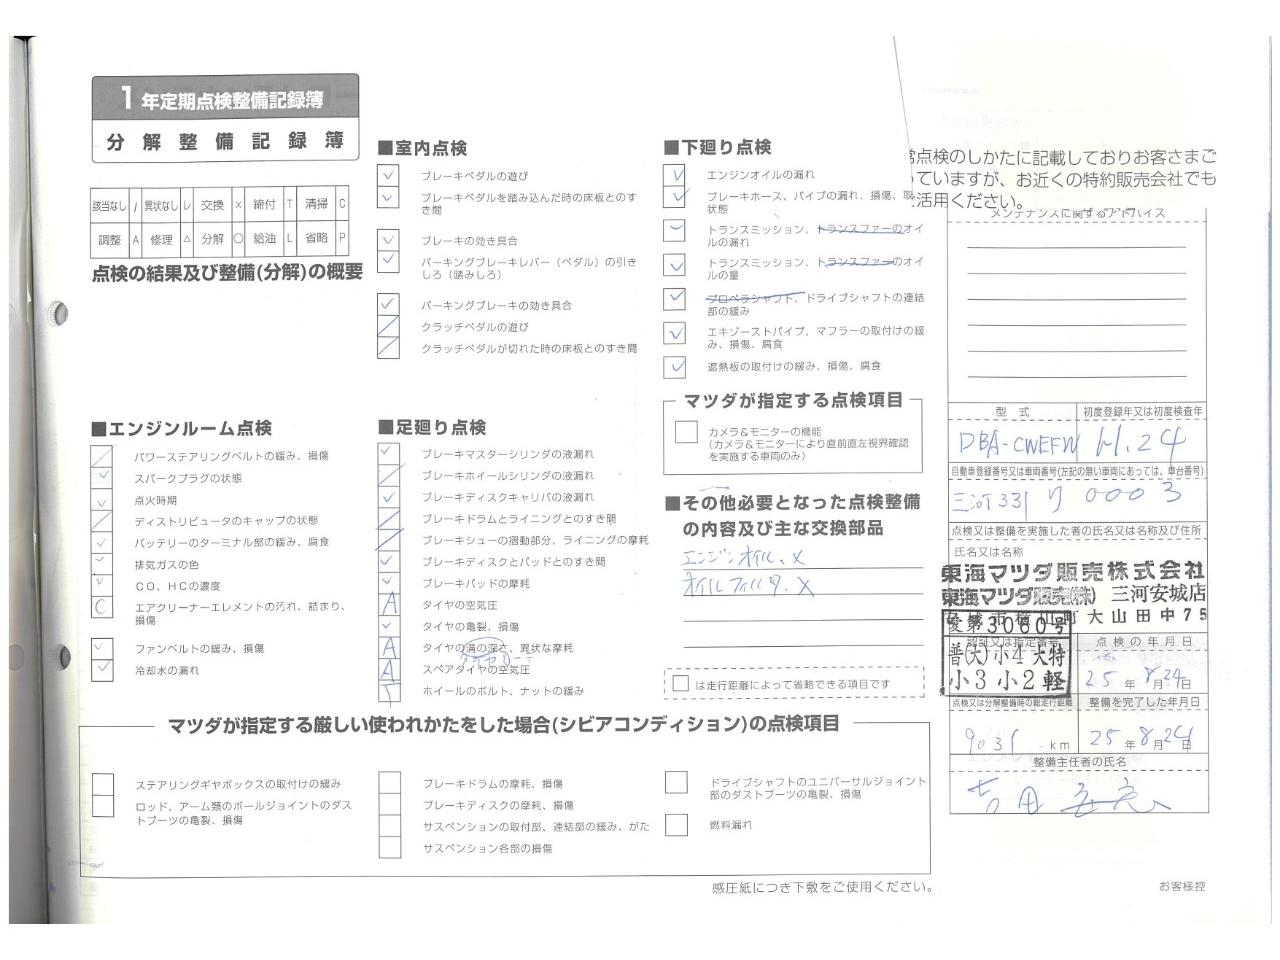 1年定期点検整備記録簿
分解整備記録簿
該当なし / 異状なし レ 交換 × 締付 T 清掃 C
調整 A 修理 △ 分解 ○ 給油 L 省略 P
点検の結果及び整備(分解)の概要
■エンジンルーム点検
パワーステアリングベルトの緩み、損傷
スパークプラグの状態
点火時期
ディストリビュータのキャップの状態
バッテリーのターミナル部の緩み、腐食
排気ガスの色
CO、HCの濃度
C エアクリーナーエレメントの汚れ、詰まり、
損傷
ファンベルトの緩み、損傷
冷却水の漏れ
■室内点検
ブレーキペダルの遊び
ブレーキペダルを踏み込んだ時の床板とのす
き間
ブレーキの効き具合
パーキングブレーキレバー(ペダル)の引き
しろ(踏みしろ)
パーキングブレーキの効き具合
クラッチペダルの遊び
クラッチペダルが切れた時の床板とのすき間
■足廻り点検
ブレーキマスターシリンダの液漏れ
ブレーキホイールシリンダの液漏れ
ブレーキディスクキャリパの液漏れ
ブレーキドラムとライニングとのすき間
ブレーキシューの摺動部分、ライニングの摩耗
ブレーキディスクとパッドとのすき間
ブレーキパッドの摩耗
A タイヤの空気圧
タイヤの亀裂、損傷
A タイヤの溝の深さ、異状な摩耗
A スペアタイヤの空気圧
T ホイールのボルト、ナットの緩み
■下廻り点検
エンジンオイルの漏れ
ブレーキホース、パイプの漏れ、損傷、取
状態
トランスミッション、トランスファーのオイ
ルの漏れ
トランスミッション、トランスファーのオイ
ルの量
プロペラシャフト、ドライブシャフトの連結
部の緩み
エキゾーストパイプ、マフラーの取付けの緩
み、損傷、腐食
遮熱板の取付けの緩み、損傷、腐食
マツダが指定する点検項目
カメラ&モニターの機能
(カメラ&モニターにより直前直左視界確認
を実施する車両のみ)
■その他必要となった点検整備
の内容及び主な交換部品
エンジンオイル、X
オイルフィルタ、X
□は走行距離によって省略できる項目です
マツダが指定する厳しい使われかたをした場合(シビアコンディション)の点検項目
ステアリングギヤボックスの取付けの緩み
ロッド、アーム類のボールジョイントのダス
トブーツの亀裂、損傷
ブレーキドラムの摩耗、損傷
ブレーキディスクの摩耗、損傷
サスペンションの取付部、連結部の緩み、がた
サスペンション各部の損傷
ドライブシャフトのユニバーサルジョイント
部のダストブーツの亀裂、損傷
燃料漏れ
感圧紙につき下敷をご使用ください。
点検のしかたに記載しておりお客さまご
っていますが、お近くの特約販売会社でも
活用ください。
メンテナンスに関するアドバイス
型式 初度登録年又は初度検査年
DBA-CWEFW H.24
自動車登録番号又は車両番号(左記の無い車両にあっては、車台番号)
三河331 り 0003
点検又は整備を実施した者の氏名又は名称及び住所
氏名又は名称
東海マツダ販売株式会社
東海マツダ販売(株) 三河安城店
町大山田中75
愛第3060号
認証又は指定番号 点検の年月日
普(大)小4大特
小3小2軽
25年8月24日
点検又は分解整備時の総走行距離 整備を完了した年月日
9031 km 25年8月24日
整備主任者の氏名
お客様控